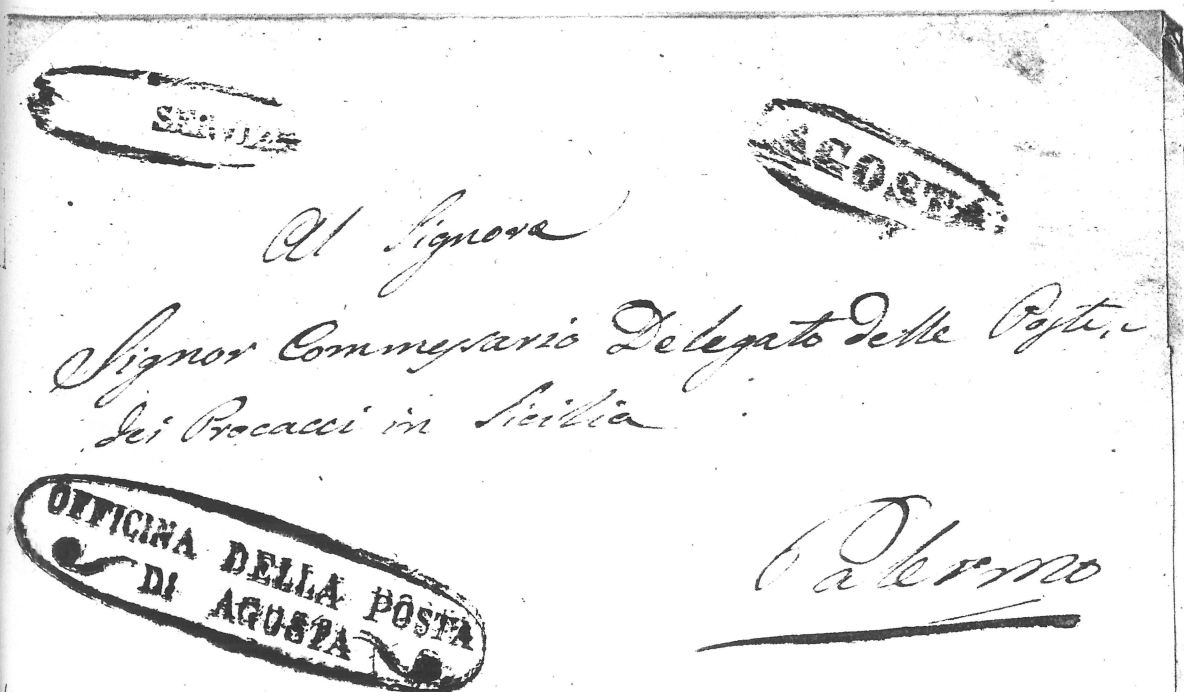 SERVIZ
AGOSTA
Al Signore
Signor Commessario Delegato delle Poste, e
dei Procacci in Sicilia
OFFICINA DELLA POSTA
DI AGOSTA
Palermo